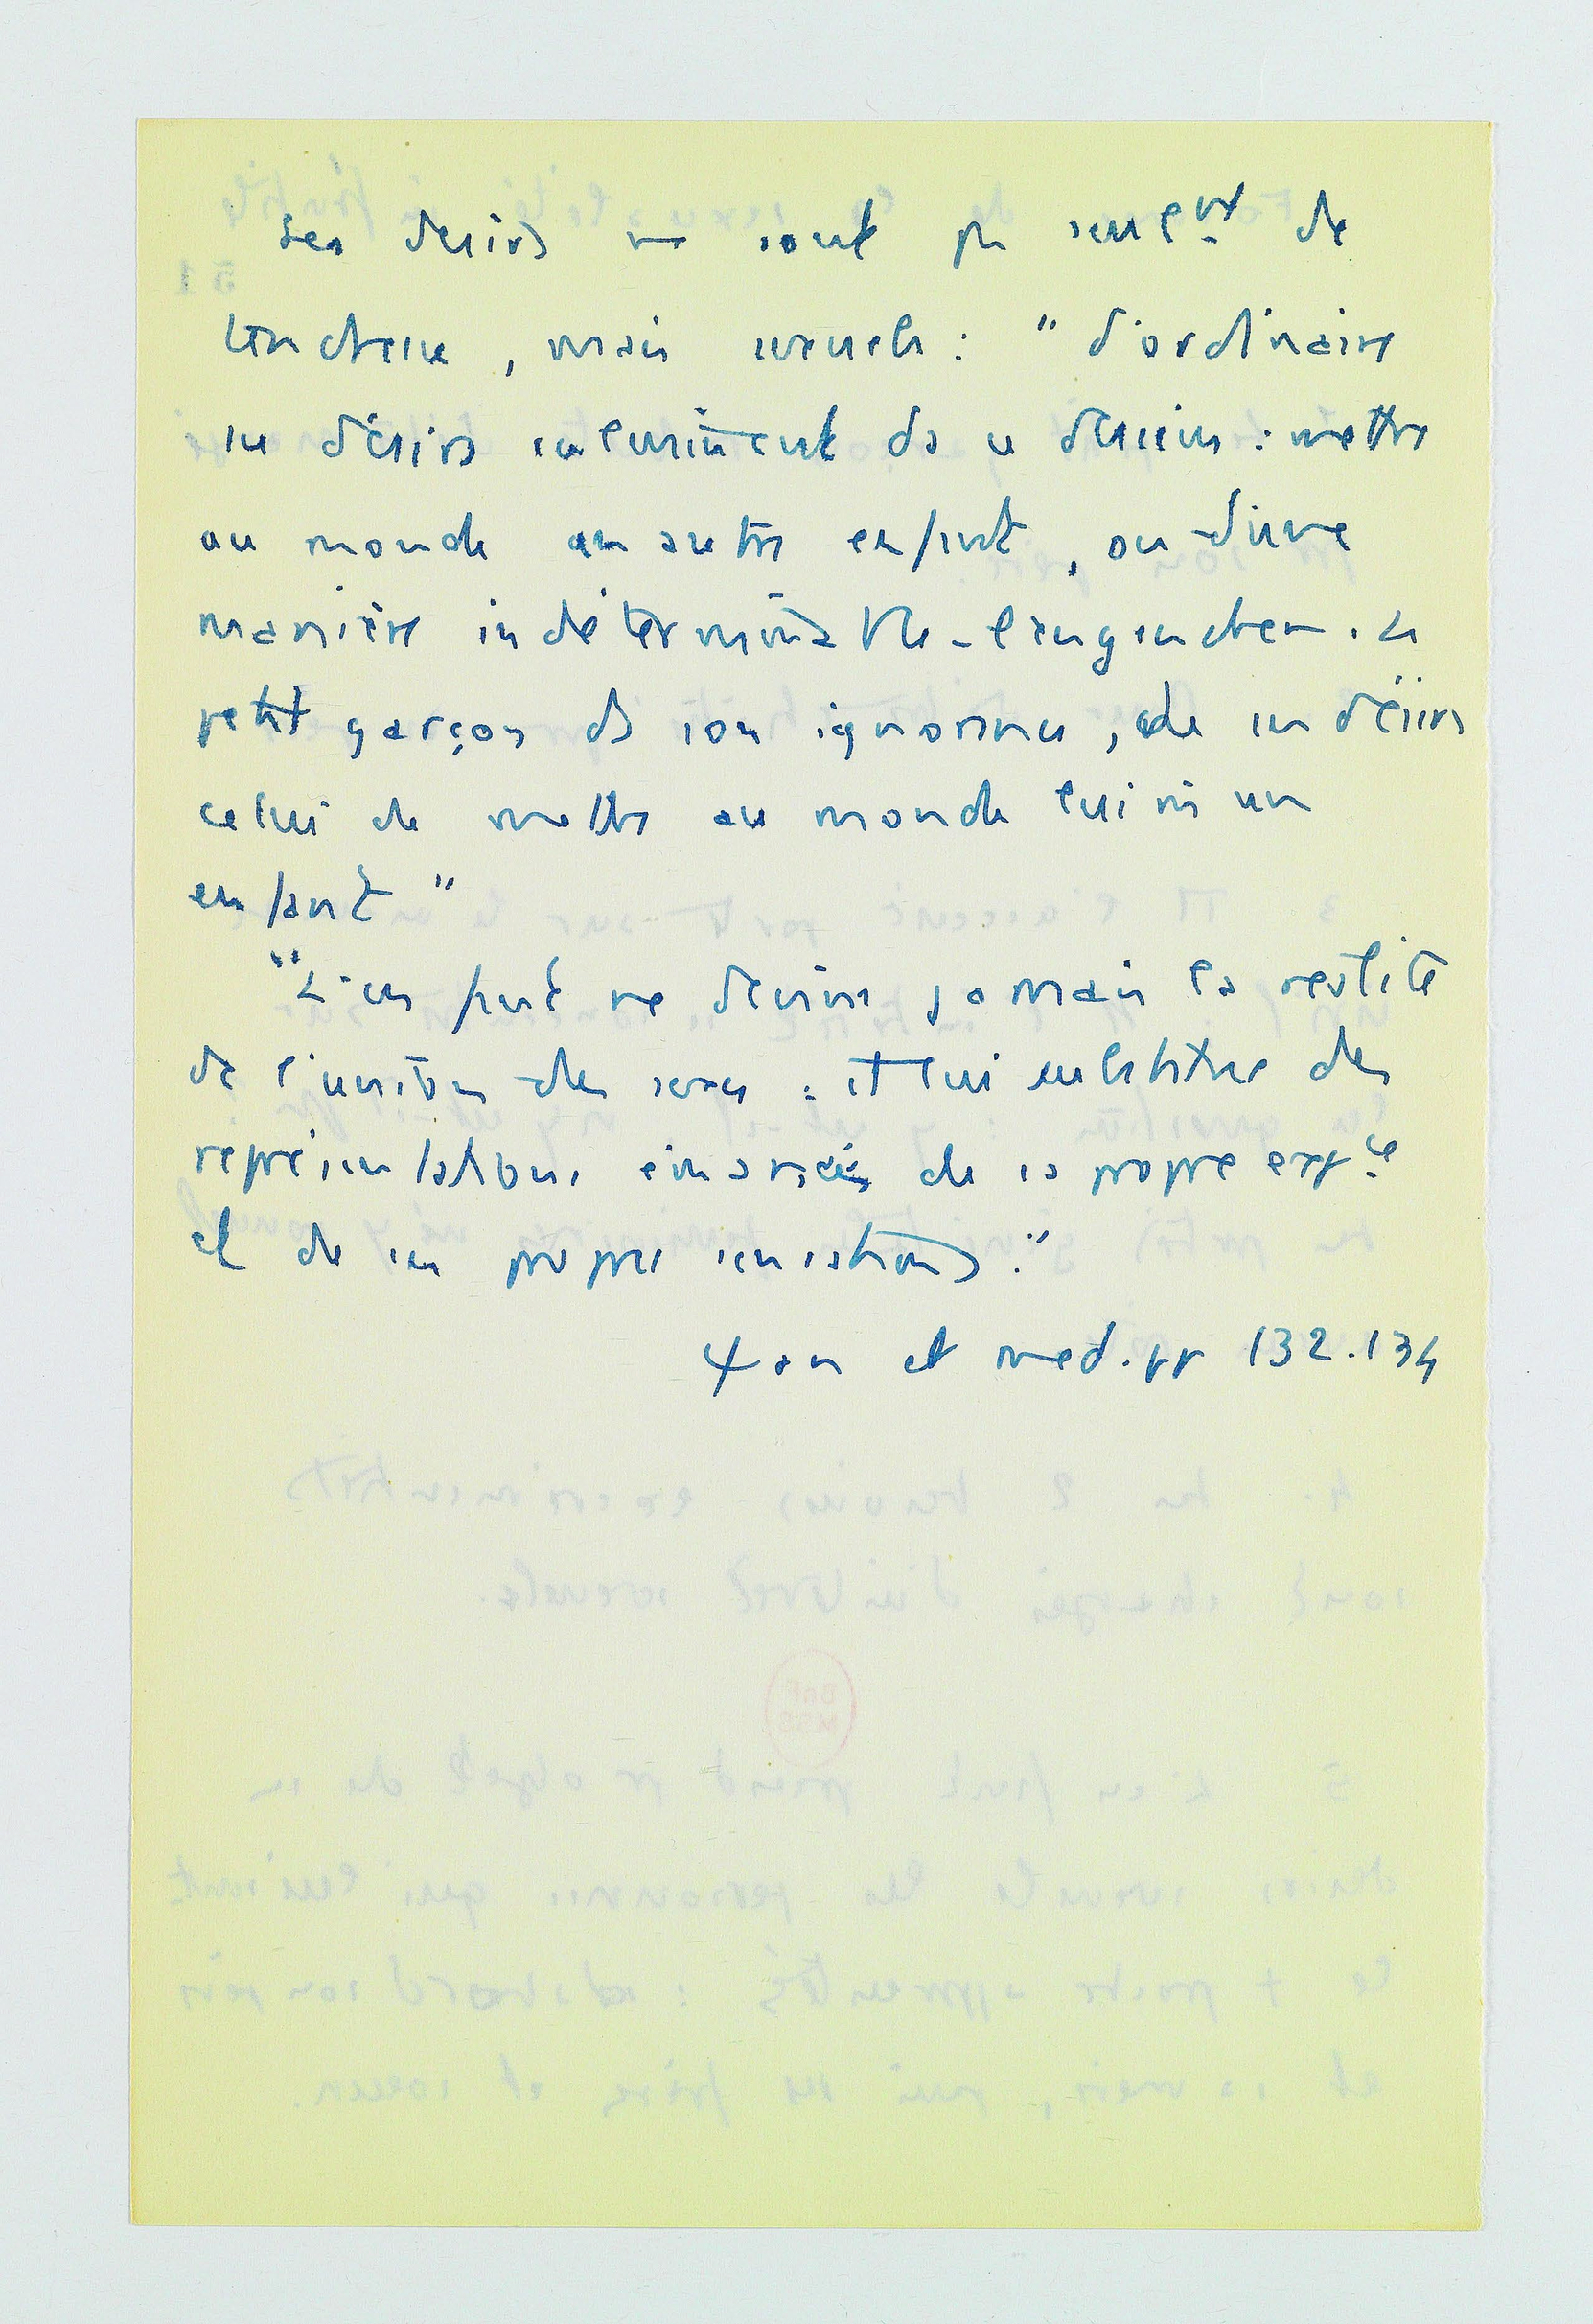 Ses désirs ne sont pas seulemt de
tendresse, mais sexuels : "D'ordinaire
ses désirs culminent ds ce dessein : mettre
au monde un autre enfant, ou d'une
manière indéterminable - l'engendrer. Le
petit garçon ds son ignorance,
celui de mettre au monde lui mê un
enfant"
"L'enfant ne devine jamais la réalité
de l'union des sexes : il lui substitue des
représentations émanées de sa propre expce
et de ses propres sensations."
Ψan et med. pp 132.134